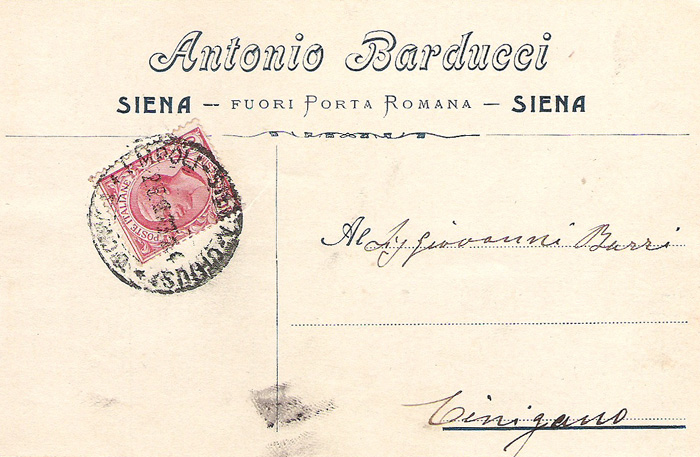 Antonio Barducci
SIENA -- FUORI PORTA ROMANA — SIENA
POSTE ITALIANE
Al Sig Giovanni Burri
Cinigano